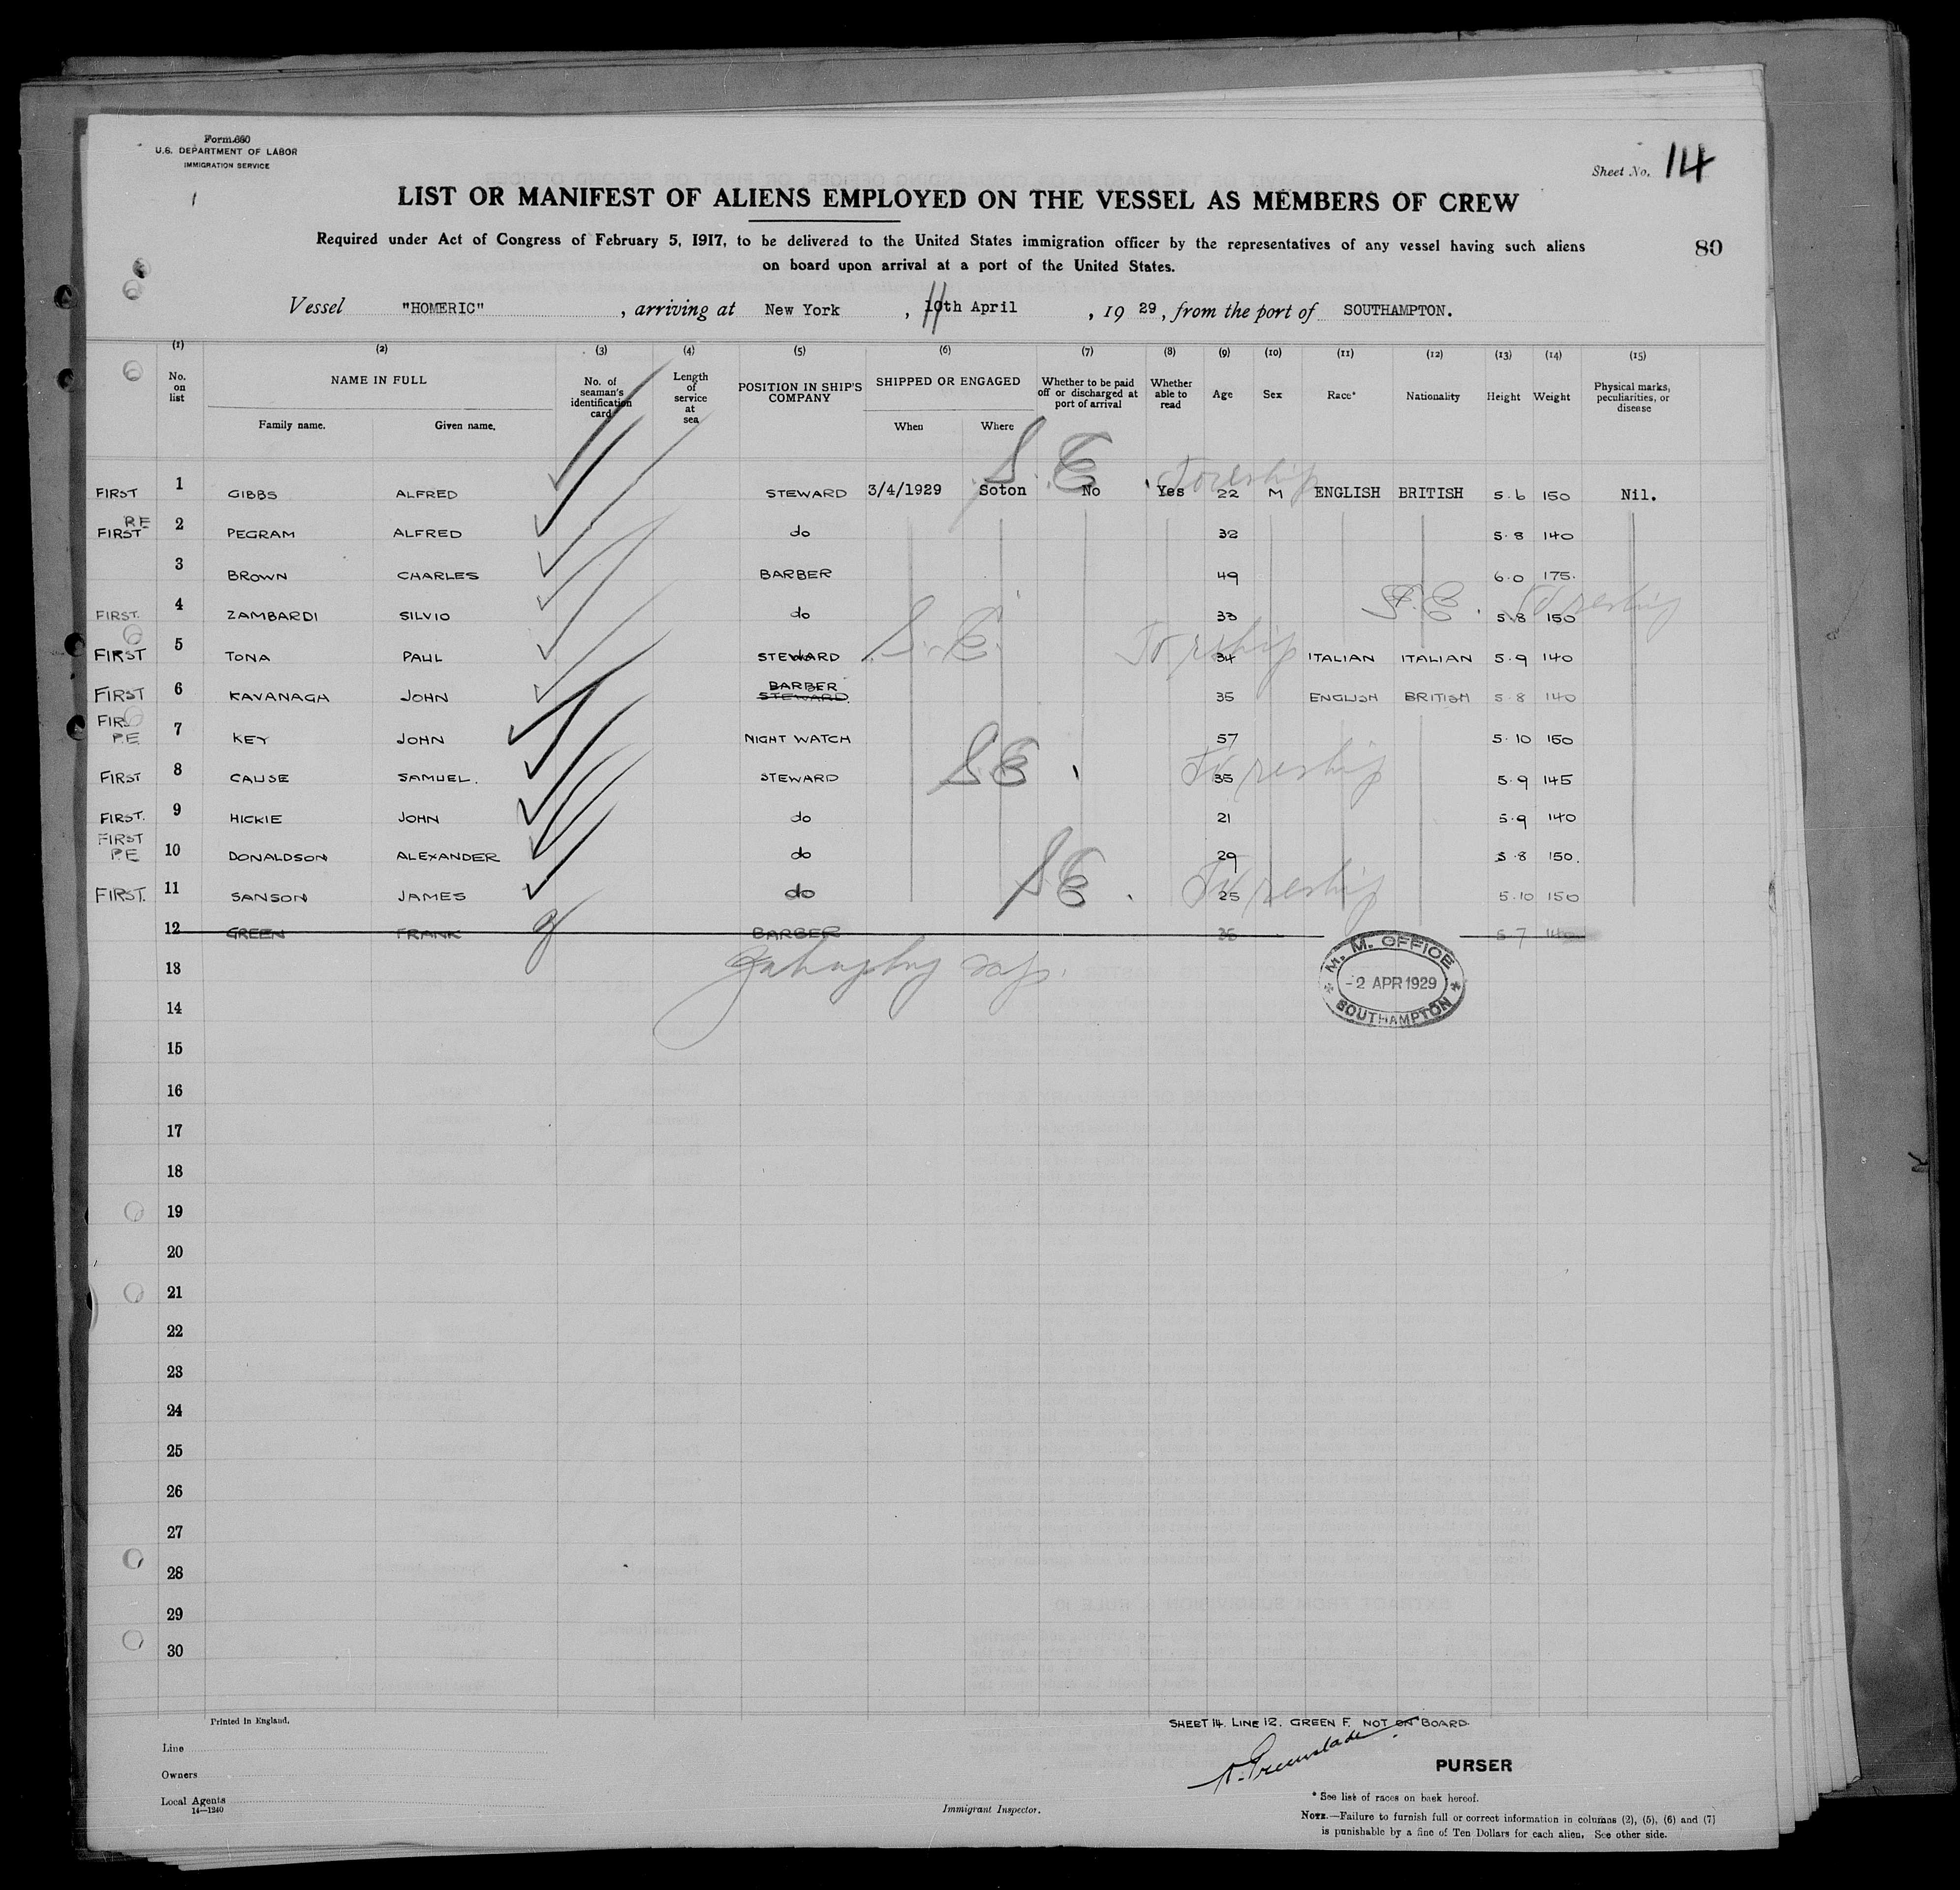 Form 680
U.S. DEPARTMENT OF LABOR
IMMIGRATION SERVICE
Sheet No. 14
LIST OR MANIFEST OF ALIENS EMPLOYED ON THE VESSEL AS MEMBERS OF CREW
Required under Act of Congress of February 5, 1917, to be delivered to the United States immigration officer by the representatives of any vessel having such aliens
on board upon arrival at a port of the United States.
80
Vessel "HOMERIC", arriving at New York, 11th April, 1929, from the port of SOUTHAMPTON.
(1) (2) (3) (4) (5) (6) (7) (8) (9) (10) (11) (12) (13) (14) (15)
No. on list
NAME IN FULL
Family name. Given name.
No. of seaman's identification card
Length of service at sea
POSITION IN SHIP'S COMPANY
SHIPPED OR ENGAGED
When Where
Whether to be paid off or discharged at port of arrival
Whether able to read
Age
Sex
Race*
Nationality
Height
Weight
Physical marks, peculiarities, or disease
S.E. To reship
FIRST 1 GIBBS ALFRED STEWARD 3/4/1929 Soton No Yes 22 M ENGLISH BRITISH 5.6 150 Nil.
RE
FIRST 2 PEGRAM ALFRED do 32 5.8 140
3 BROWN CHARLES BARBER 49 6.0 175.
S.E. To reship
FIRST. 4 ZAMBARDI SILVIO do 33 5.8 150
S.E. To reship
FIRST 5 TONA PAUL STEWARD 34 ITALIAN ITALIAN 5.9 140
FIRST 6 KAVANAGH JOHN BARBER STEWARD. 35 ENGLISH BRITISH 5.8 140
7 KEY JOHN NIGHT WATCH 57 5.10 150
S.E. To reship
FIRST 8 CAUSE SAMUEL. STEWARD 35 5.9 145
FIRST. 9 HICKIE JOHN do 21 5.9 140
FIRST
10 DONALDSON ALEXANDER do 29 5.8 150.
S.E. To reship
FIRST. 11 SANSON JAMES do 25 5.10 150
12 GREEN FRANK BARBER 35 5.7 140
M. M. OFFICE
-2 APR 1929
SOUTHAMPTON
13
14
15
16
17
18
19
20
21
22
23
24
25
26
27
28
29
30
Printed in England.
SHEET 14. LINE 12. GREEN F. NOT ON BOARD.
Line
Owners
PURSER
Local Agents
14—1240
Immigrant Inspector.
* See list of races on back hereof.
NOTE.—Failure to furnish full or correct information in columns (2), (5), (6) and (7)
is punishable by a fine of Ten Dollars for each alien. See other side.